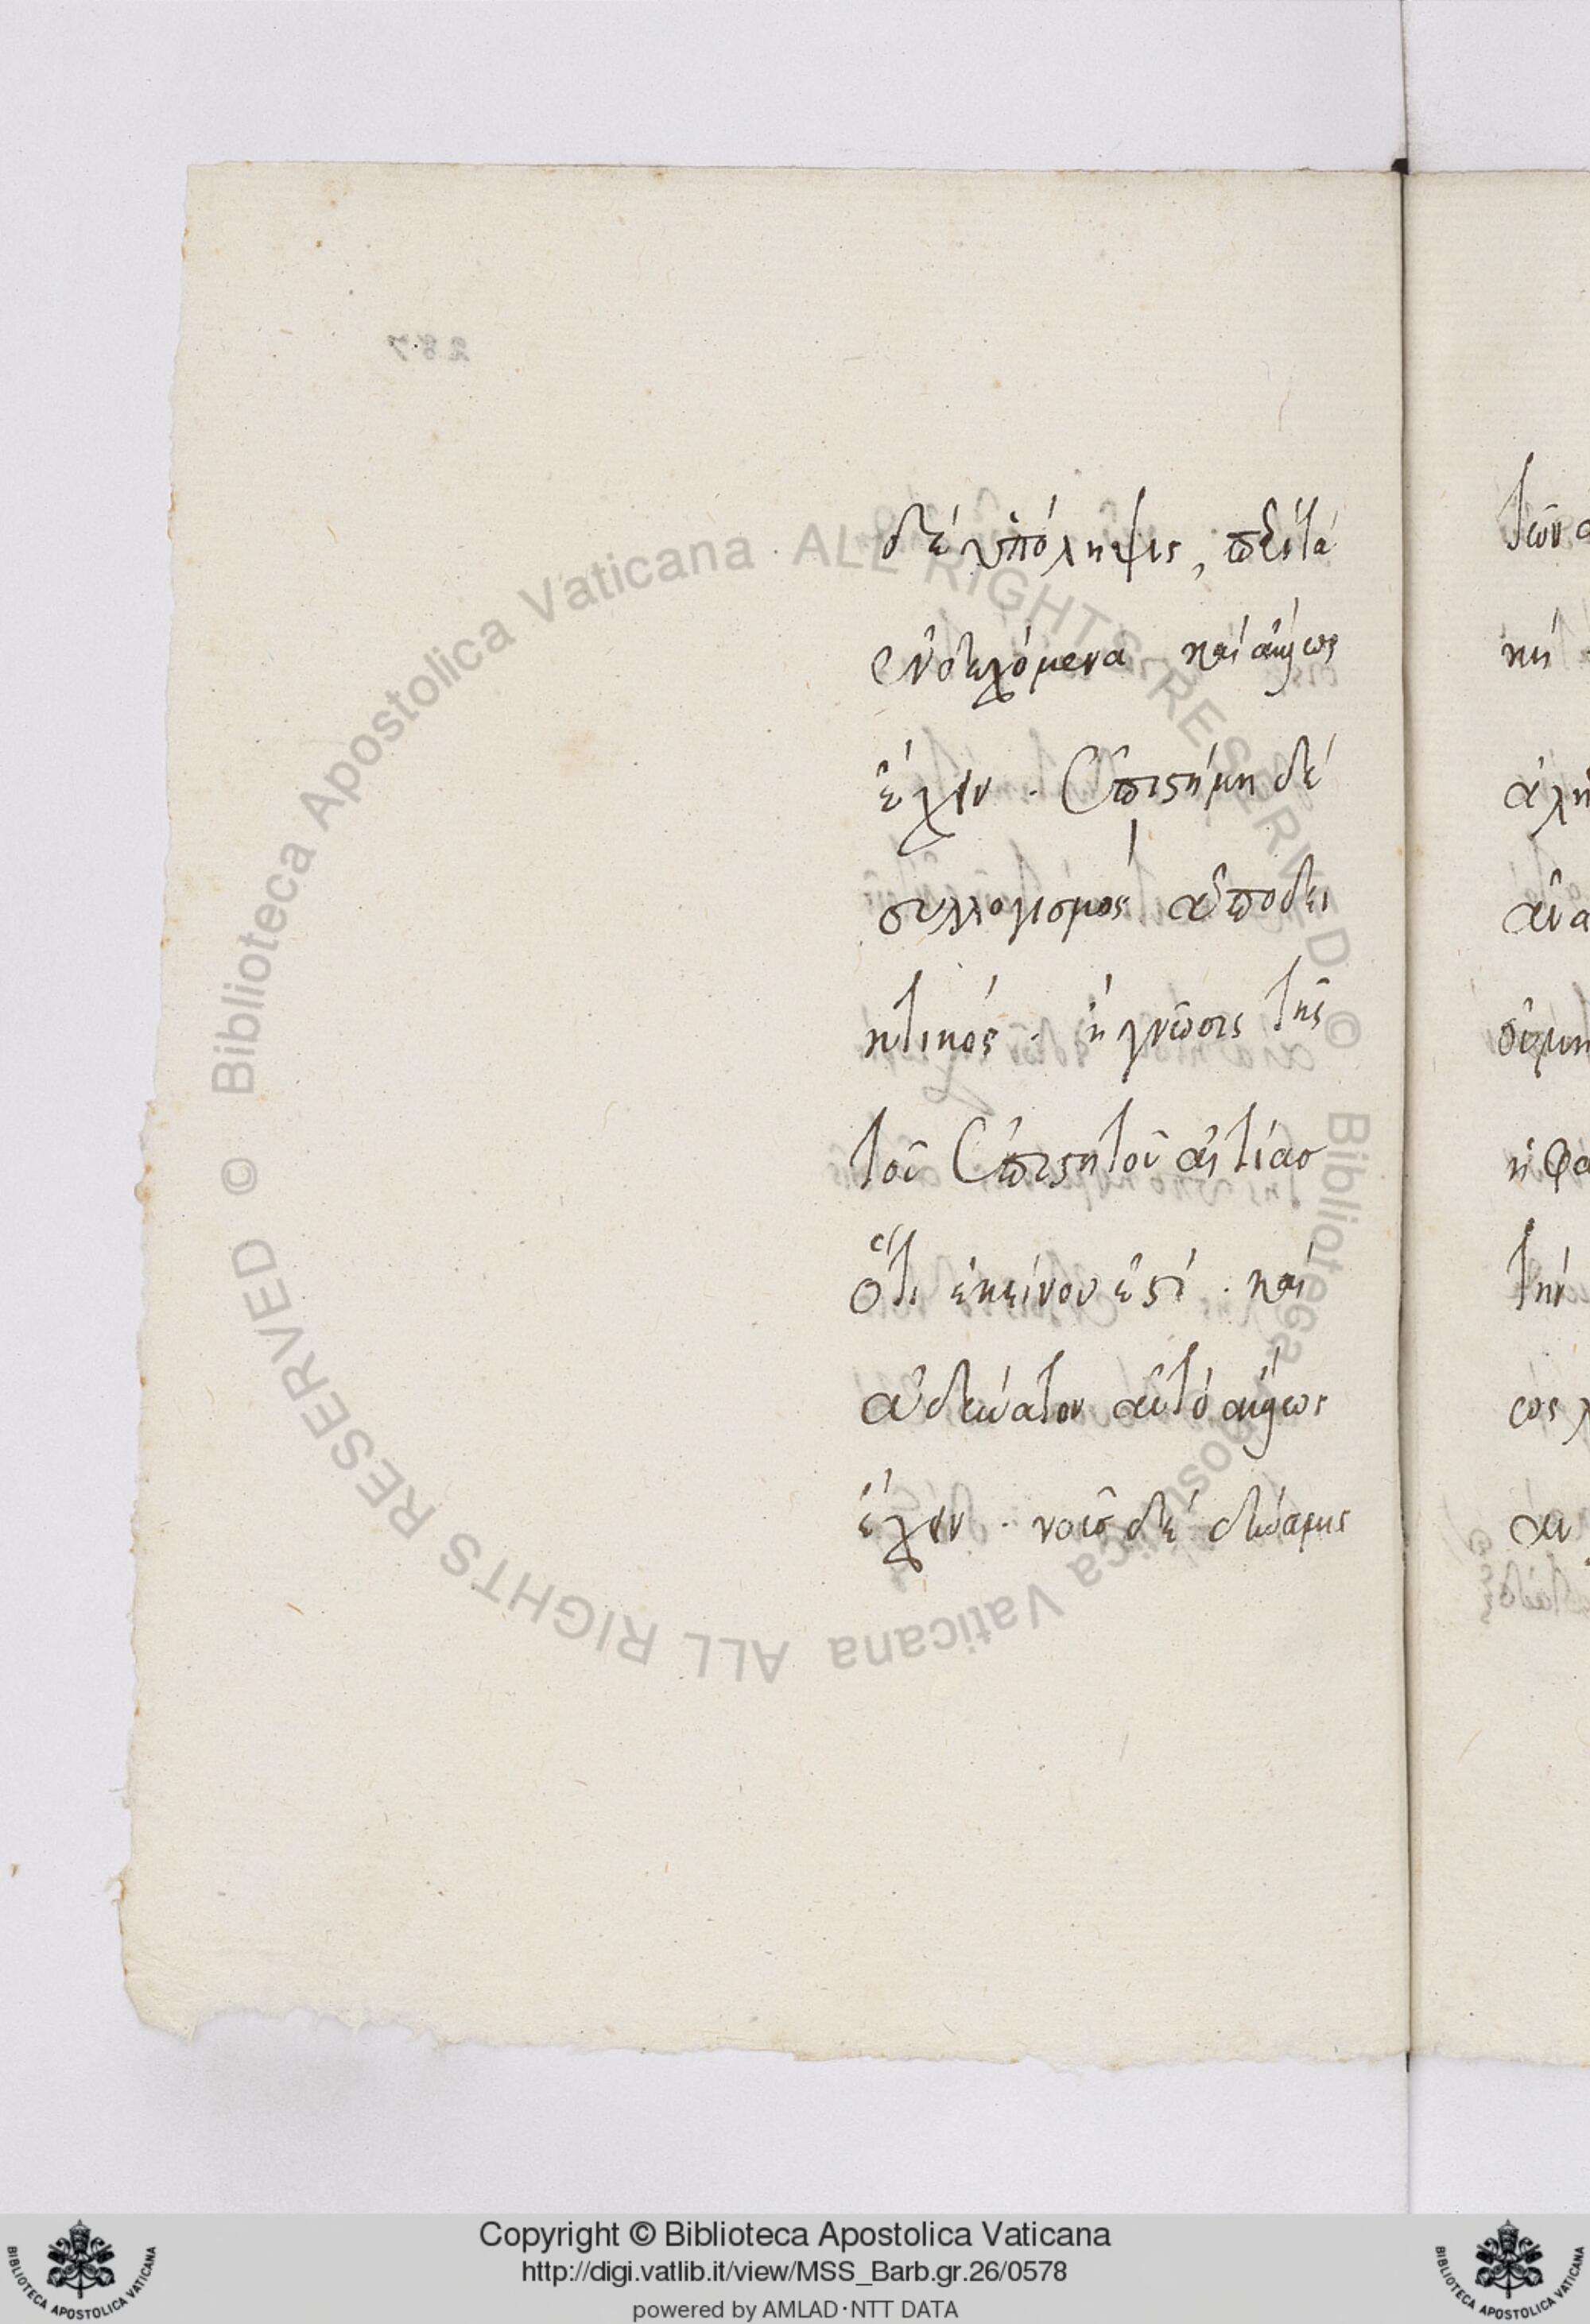 δὲ ὑπόληψις, περὶ τὰ
ἐνδεχόμενα καὶ ἄλλως
ἔχειν · ἐπιστήμη δὲ
συλλογισμὸς ἀποδει
κτικός · ἡ γνῶσις τῆς
τοῦ ἐπιστητοῦ αἰτίας
ὅτι ἐκείνου ἐστί · καὶ
ἀδύνατον αὐτὸ ἄλλως
ἔχειν · νοῦς δὲ δύναμις
τῶν
κὴ
ἀλη
ἀνα
ἡ φα
τὴν
287
© Biblioteca Apostolica Vaticana ALL RIGHTS RESERVED © Biblioteca Apostolica Vaticana ALL RIGHTS RESERVED
Copyright © Biblioteca Apostolica Vaticana
http://digi.vatlib.it/view/MSS_Barb.gr.26/0578
powered by AMLAD·NTT DATA
BIBLIOTECA APOSTOLICA VATICANA
BIBLIOTECA APOSTOLICA VATICANA